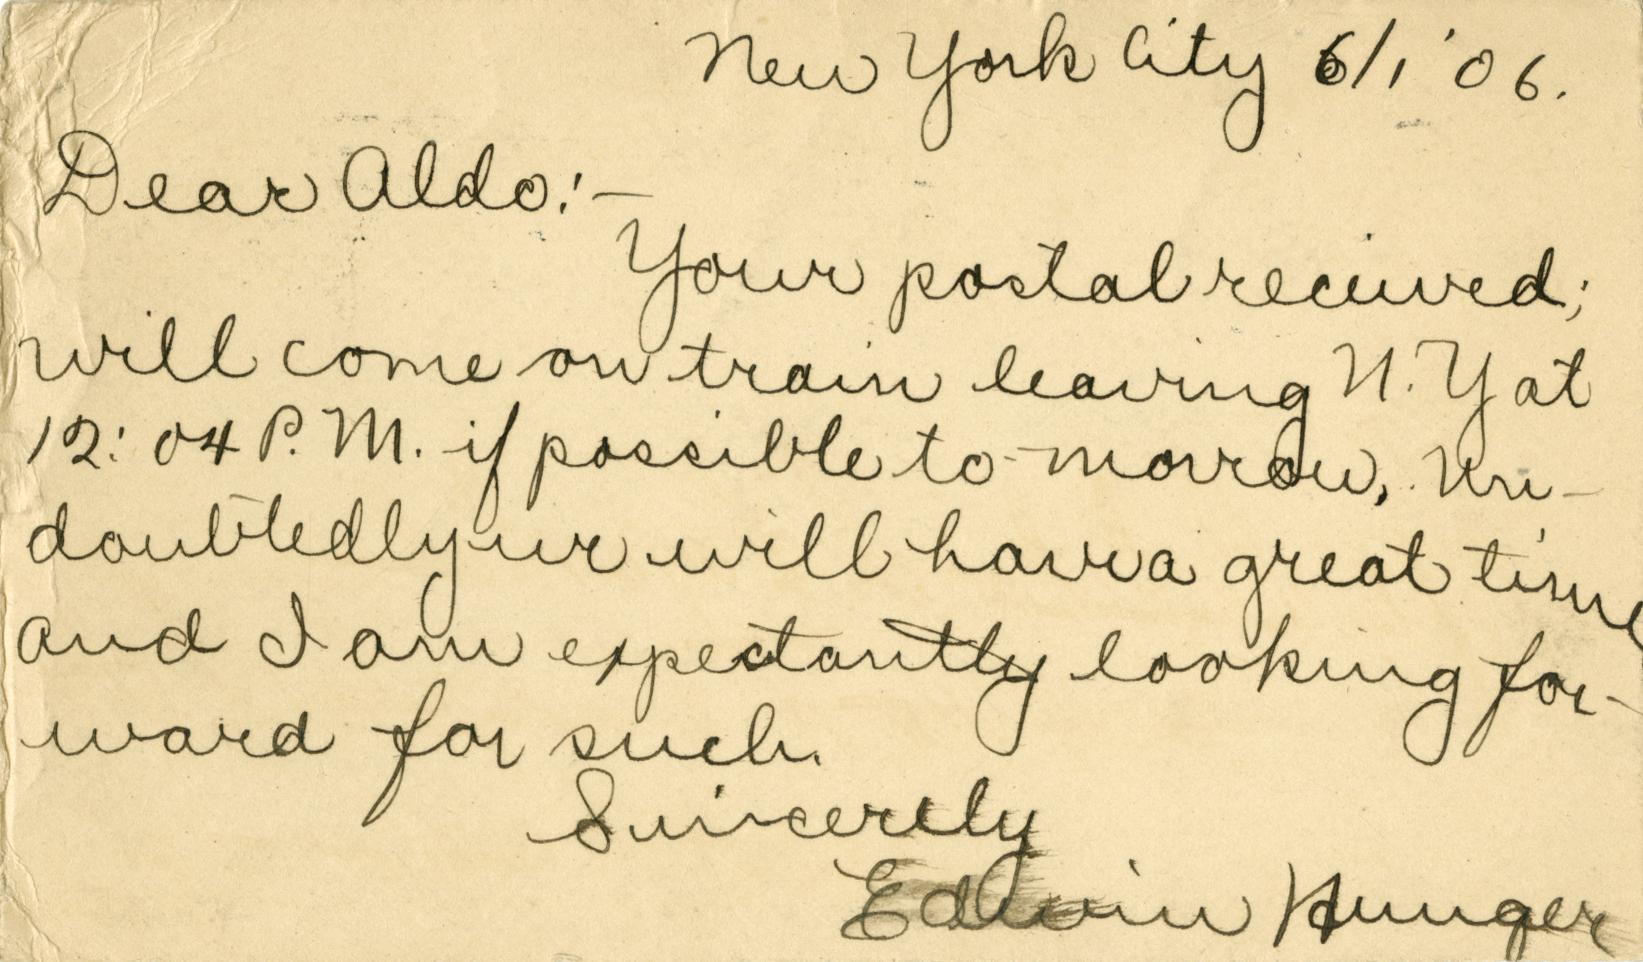 New York City 6/1 '06.
Dear Aldo:—
Your postal received;
will come on train leaving N.Y at
12:04 P.M. if possible to-morrow. Un-
doubtedly we will have a great time
and I am expectantly looking for-
ward for such.
Sincerely
Edwin Hunger